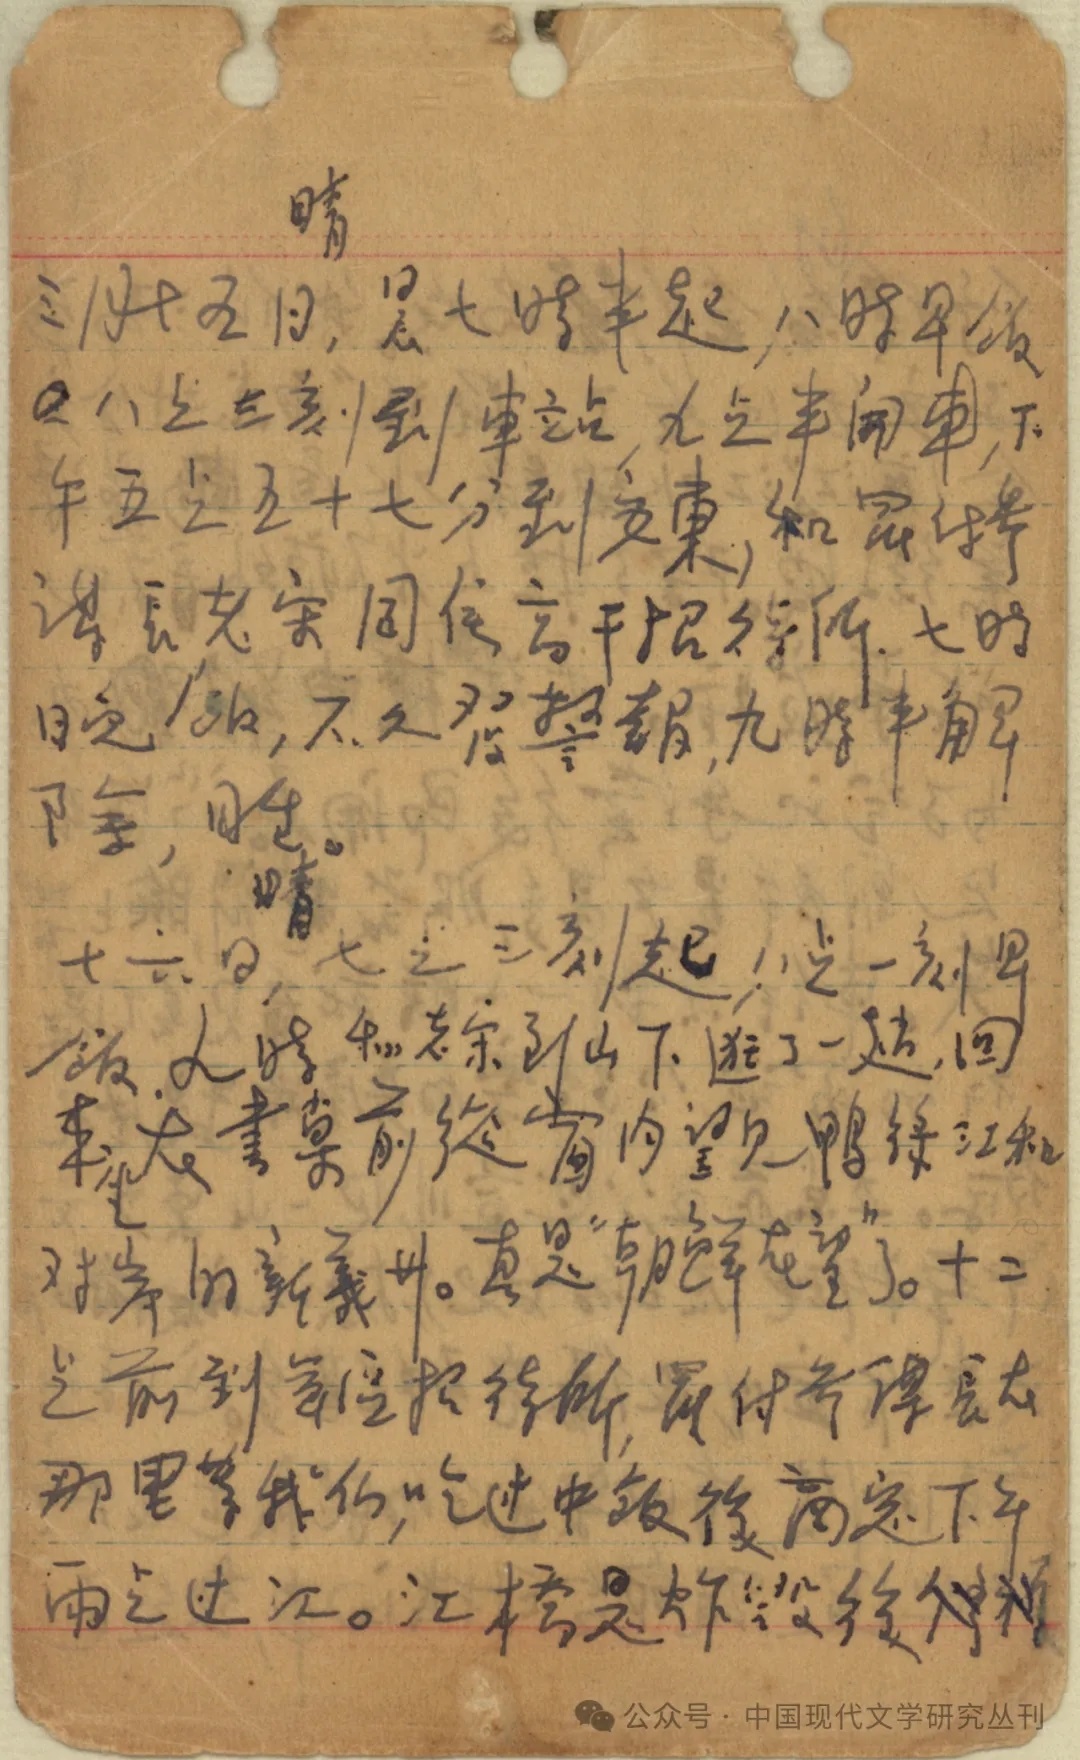 晴
三月十五日,晨七時半起,八時早飯
八点三刻到車站,九点半開車,下
午五点五十七分到安東,和罷付参
謀長老宋同住高干招待所.七時
晚飯,不久發警報,九時半解
除,睡。
晴
十六日,七点三刻起,八点一刻早
飯.九時和老宋到山下逛了一趟,回
來坐在書桌前從窗内望見鴨綠江和
对岸的新義州。真是“朝鮮在望”了。十二
点前到軍区招待所,罷付参謀長在
那里等我们,吃过中飯後商定下午
兩点过江。江橋是炸毀後
公众号·中国现代文学研究丛刊